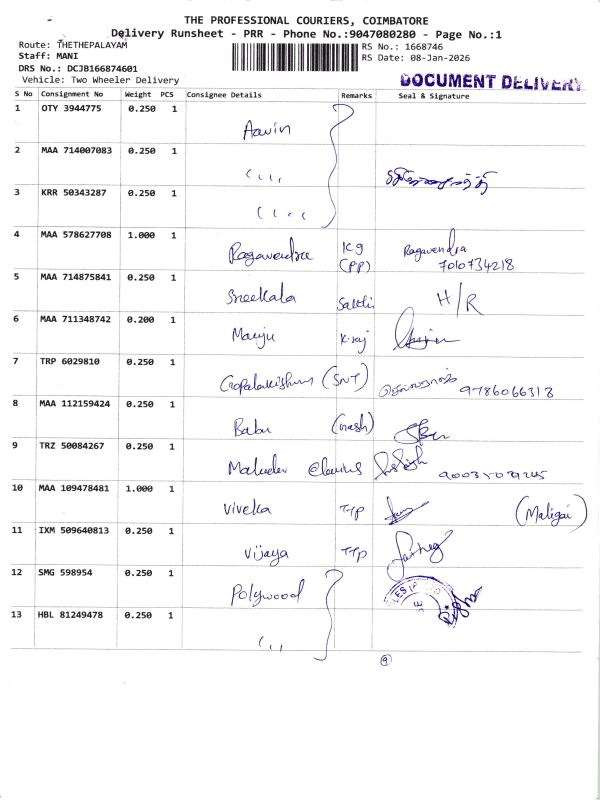 THE PROFESSIONAL COURIERS, COIMBATORE
Delivery Runsheet - PRR - Phone No.:9047080280 - Page No.:1
Route: THETHEPALAYAM
RS No.: 1668746
Staff: MANI
RS Date: 08-Jan-2026
DRS No.: DCJB166874601
Vehicle: Two Wheeler Delivery
DOCUMENT DELIVERY
S No Consignment No Weight PCS Consignee Details Remarks Seal & Signature
1 OTY 3944775 0.250 1 Aavin
2 MAA 714007083 0.250 1 ( , , ,
3 KRR 50343287 0.250 1 ( , , ,
4 MAA 578627708 1.000 1 Ragavendra Kg (PP) Ragavendra 7010734218
5 MAA 714875841 0.250 1 Sreekala Sakthi H/R
6 MAA 711348742 0.200 1 Manju K.raj
7 TRP 6029810 0.250 1 Gopalakrishnan (SNT) 9786066318
8 MAA 112159424 0.250 1 Babu
9 TRZ 50084267 0.250 1 Mahadev
10 MAA 109478481 1.000 1 Viveka TTP (Maligai)
11 IXM 509640813 0.250 1 Vijaya TTP
12 SMG 598954 0.250 1 Polywood
13 HBL 81249478 0.250 1 ( , ,
9